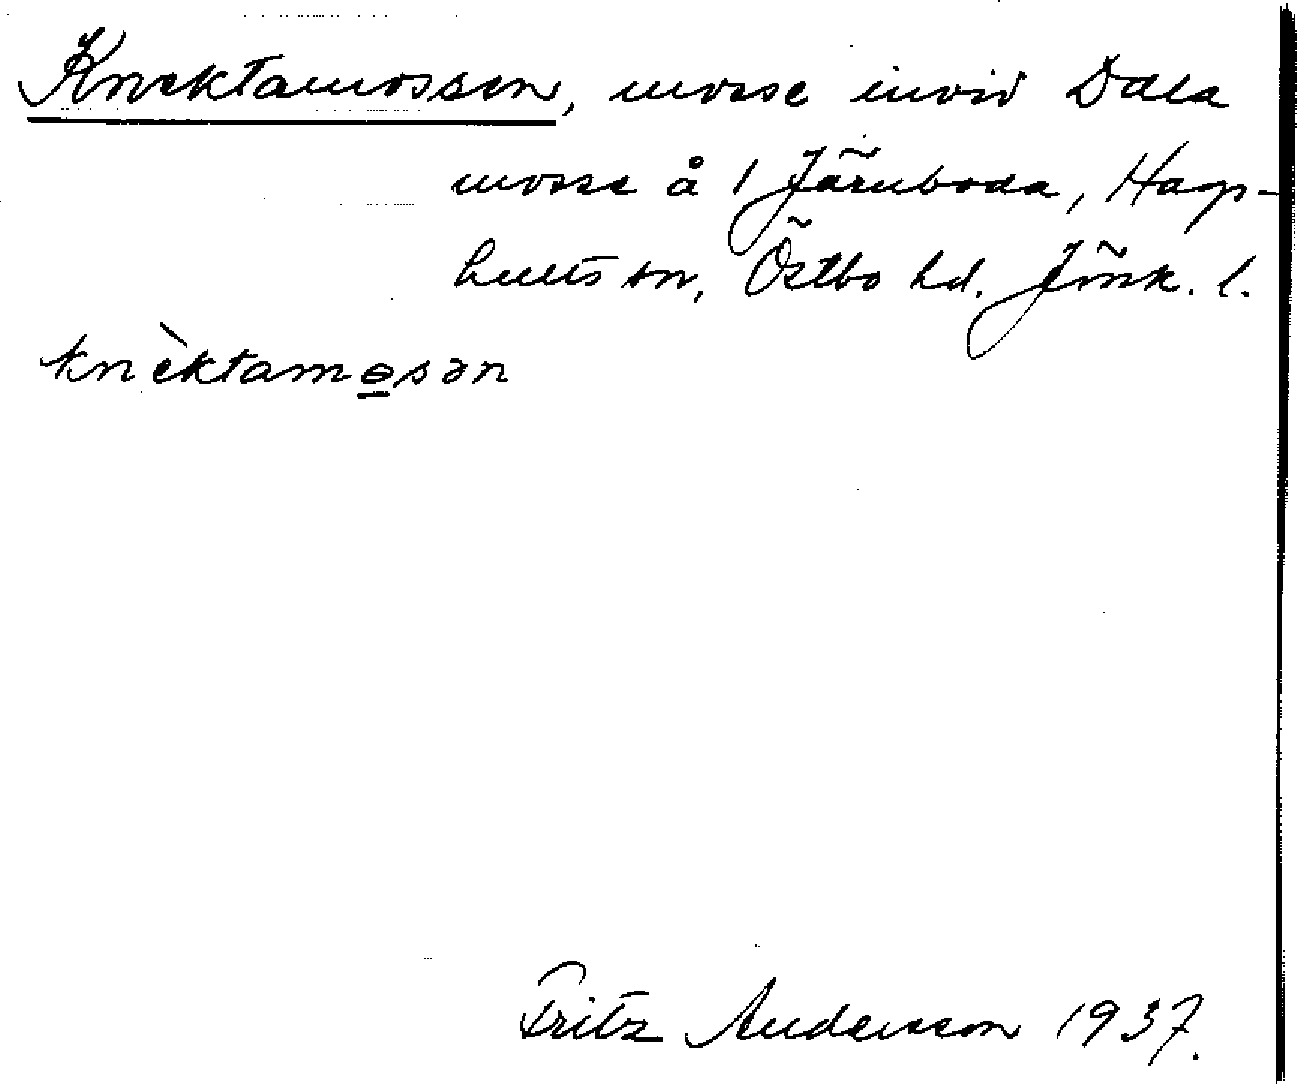 Knektamossen, mosse invid Dala
mosse å 1 Järnboda, Hags-
hults sn, Östbo hd. Jönk. l.
knèktamo̲sən
Fritz Andersson 1937.